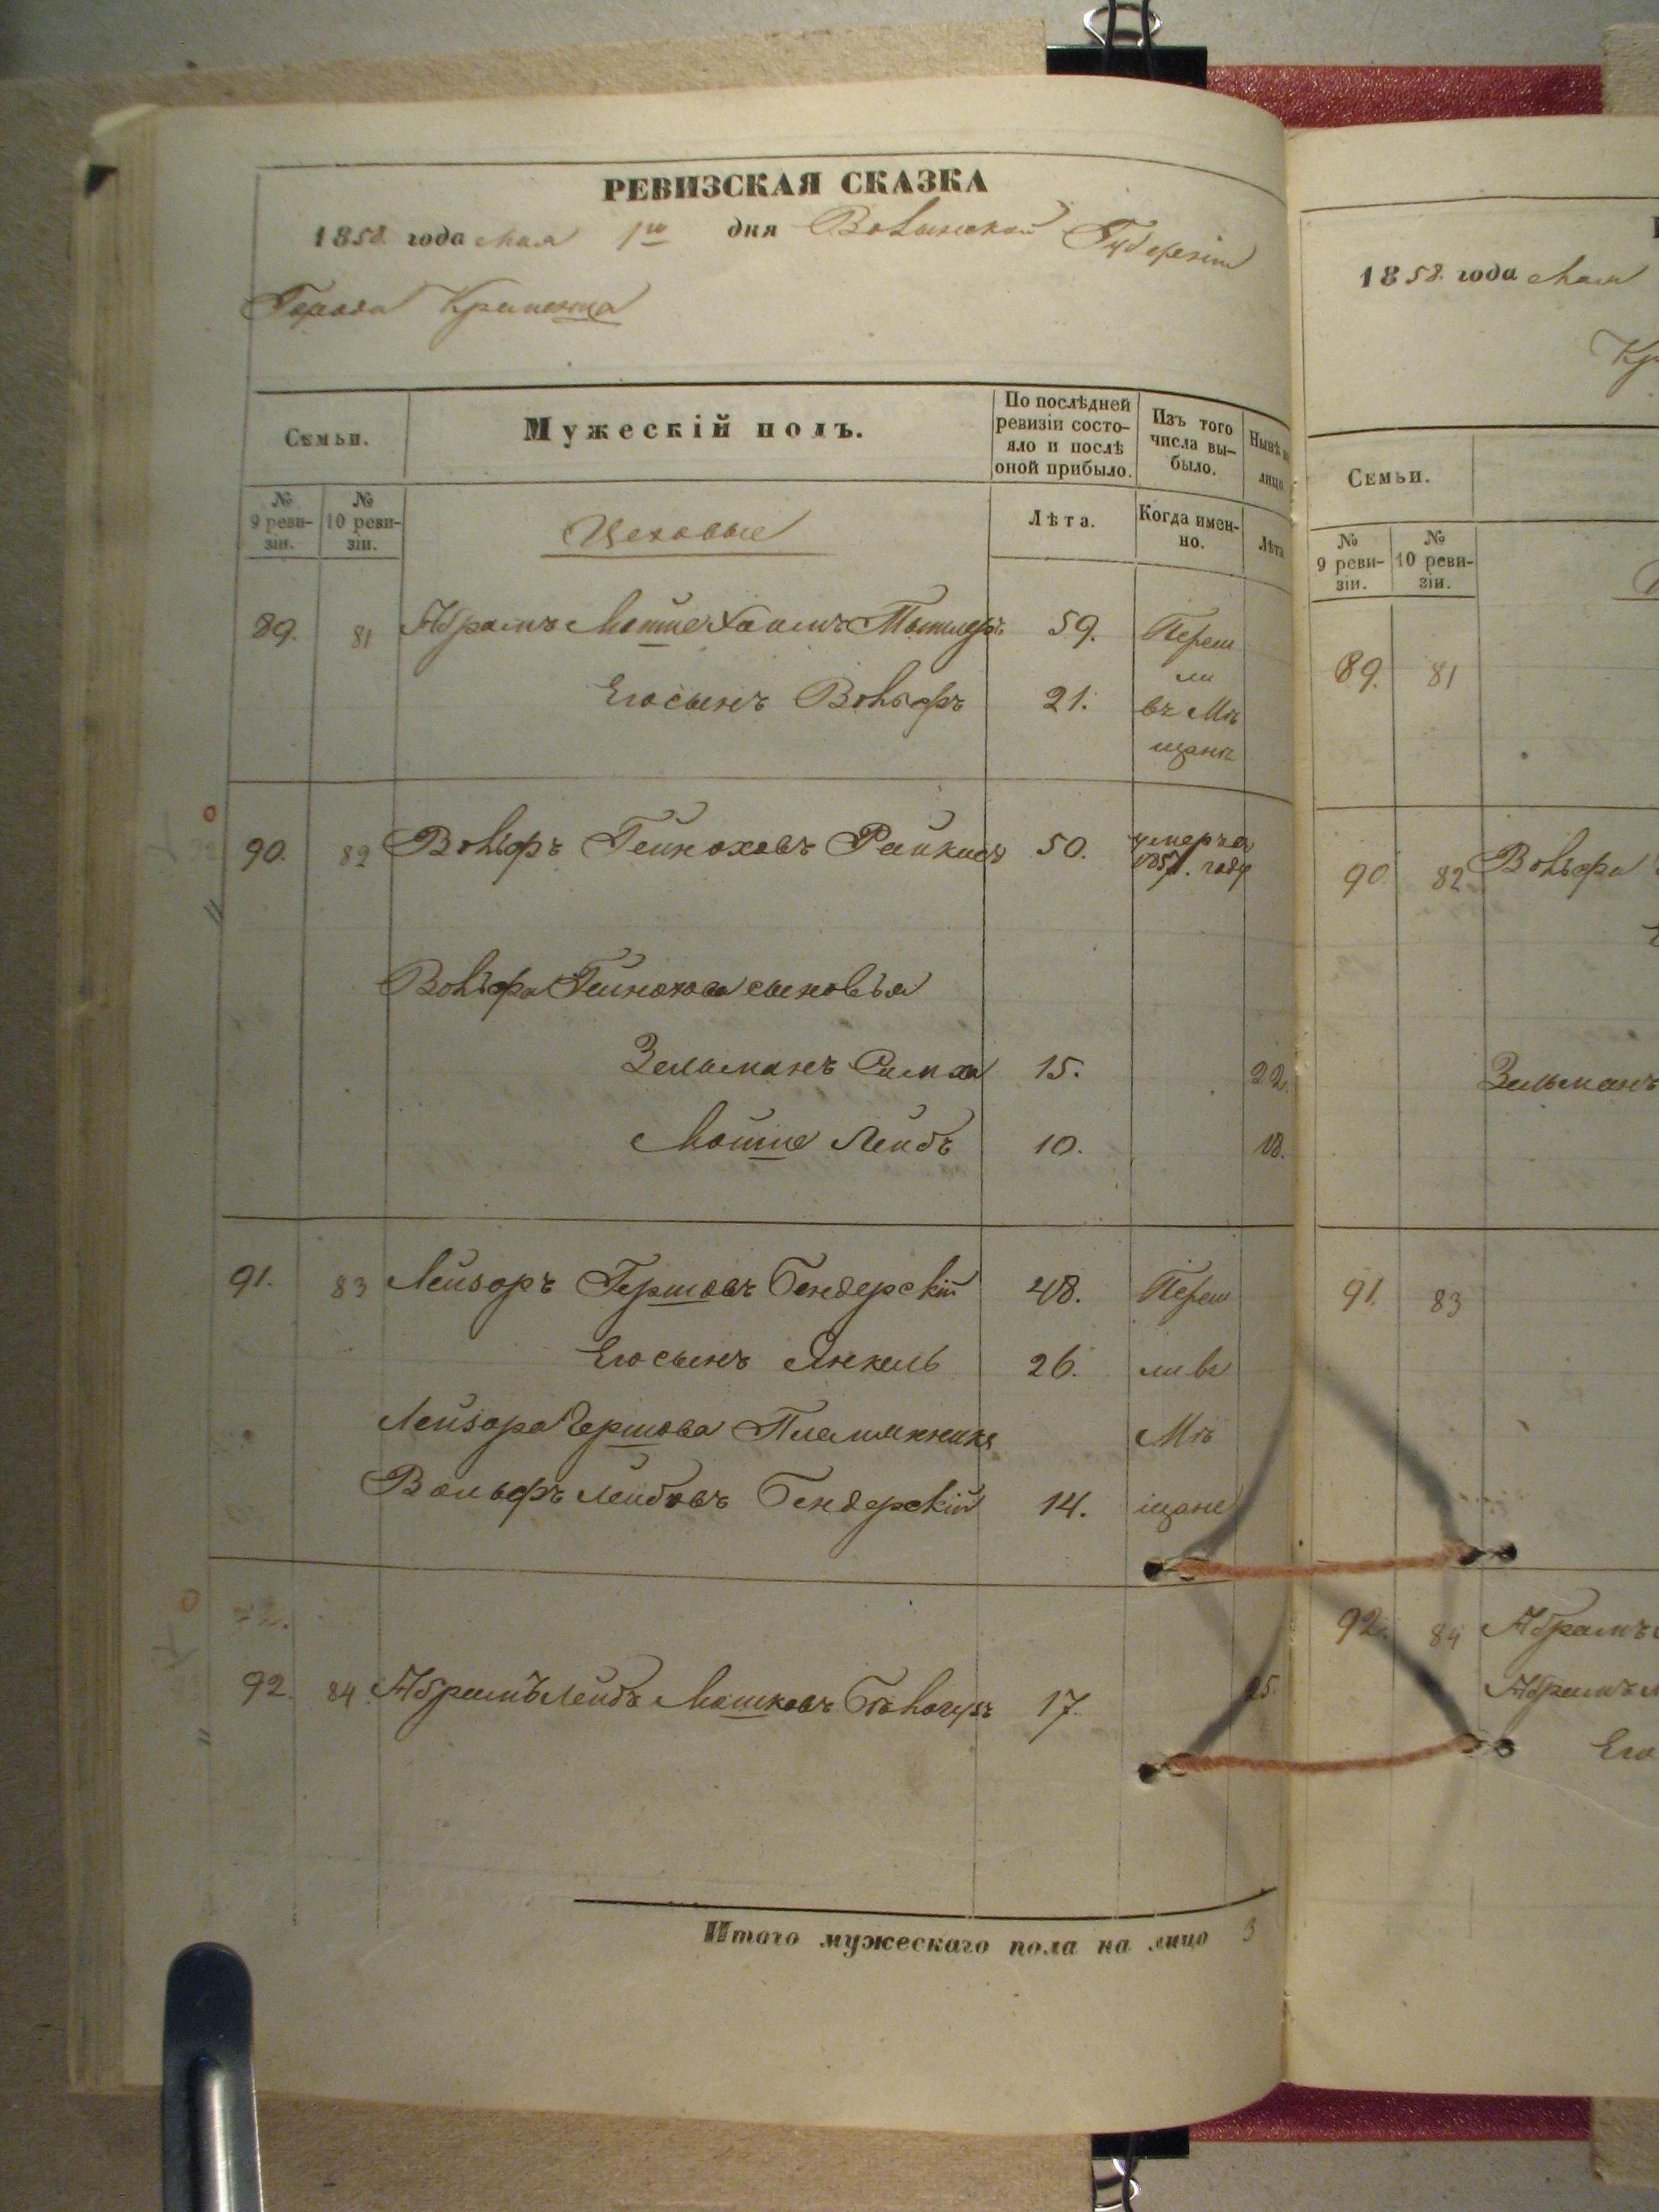 РЕВИЗСКАЯ СКАЗКА
1858 года Мая 1го дня Волынской Губерніи
Города Кременца
Семьи.
Мужескій полъ.
По послѣдней ревизіи состо-
яло и послѣ
оной прибыло.
Изъ того
числа вы-
было.
Нынѣ на
лицо
№
9 реви-
зіи.
№
10 реви-
зіи.
Цеховые
Лѣта.
Когда имен-
но.
Лѣта
89. 81 Абрамъ Мошко Хаимъ 59. Переш
ли
Его сынъ Вольфъ 21. въ Мѣ
щанъ
90. 82 Вольфъ Гейноховъ Райкисъ 50. умеръ въ
185 . году
Вольфа Гейнохова сыновья
Зельманъ Симха 15. 22.
Мошко Лейбъ 10. 18.
91. 83 Лейзоръ Гершовъ Бендерскій 48. Переш
Его сынъ Янкель 26. ли въ
Лейзора Гершова Племянникъ Мѣ
Вольфъ Лейбовъ Бендерскій 14. щане
92. 84 Абрамъ Лейбъ Мошковъ 17. 25.
Итого мужескаго пола на лицо 3
1858. года Мая
Кр
Семьи.
№
9 реви-
зіи.
№
10 реви-
зіи.
89. 81
90. 82 Вольфа
Зельманъ
91. 83
92. 84 Абрамъ
Абрамъ
Его